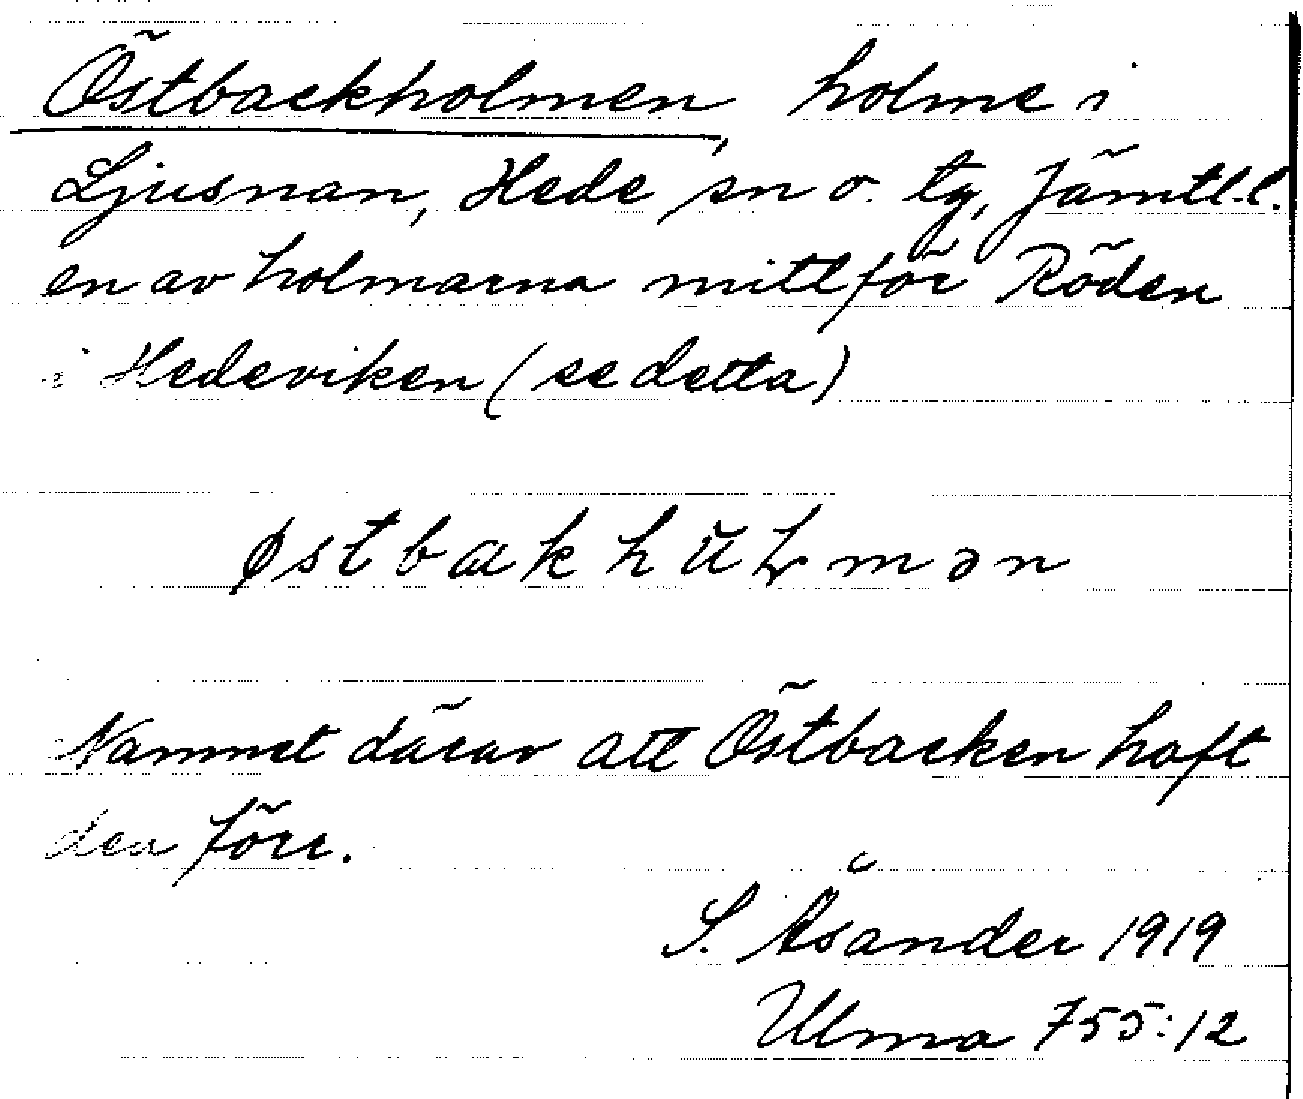 Östbackholmen, holme i
Ljusnan, Hede sn o. tg, Jämtl. l.
en av holmarna mittför Röden
i Hedeviken (se detta)
østbakhŭɽmən
Namnet därav att Östbacken haft
den förr.
S. Åsander 1919
Ulma 755:12